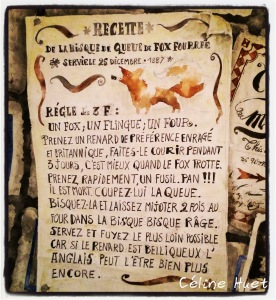 RECETTE
DE LA BISQUE DE QUEUE DE FOX FOURRÉE
SERVIE LE 25 DÉCEMBRE • 1887
RÉGLE DES 3 F :
UN FOX ; UN FLINGUE ; UN FOUPS.
PRENEZ UN RENARD DE PRÉFÉRENCE ENRAGÉ
ET BRITANNIQUE, FAITES-LE COURIR PENDANT
3 JOURS, C'EST MIEUX QUAND LE FOX TROTTE.
PRENEZ, RAPIDEMENT, UN FUSIL. PAN !!!
IL EST MORT. COUPEZ-LUI LA QUEUE.
BISQUEZ-LA ET LAISSEZ MIJOTER 2 FOIS AU
FOUR DANS LA BISQUE BISQUE RÂGE.
SERVEZ ET FUYEZ LE PLUS LOIN POSSIBLE
CAR SI LE RENARD EST BELLIQUEUX L'
ANGLAIS PEUT L'ÊTRE BIEN PLUS
ENCORE.
Céline Huet